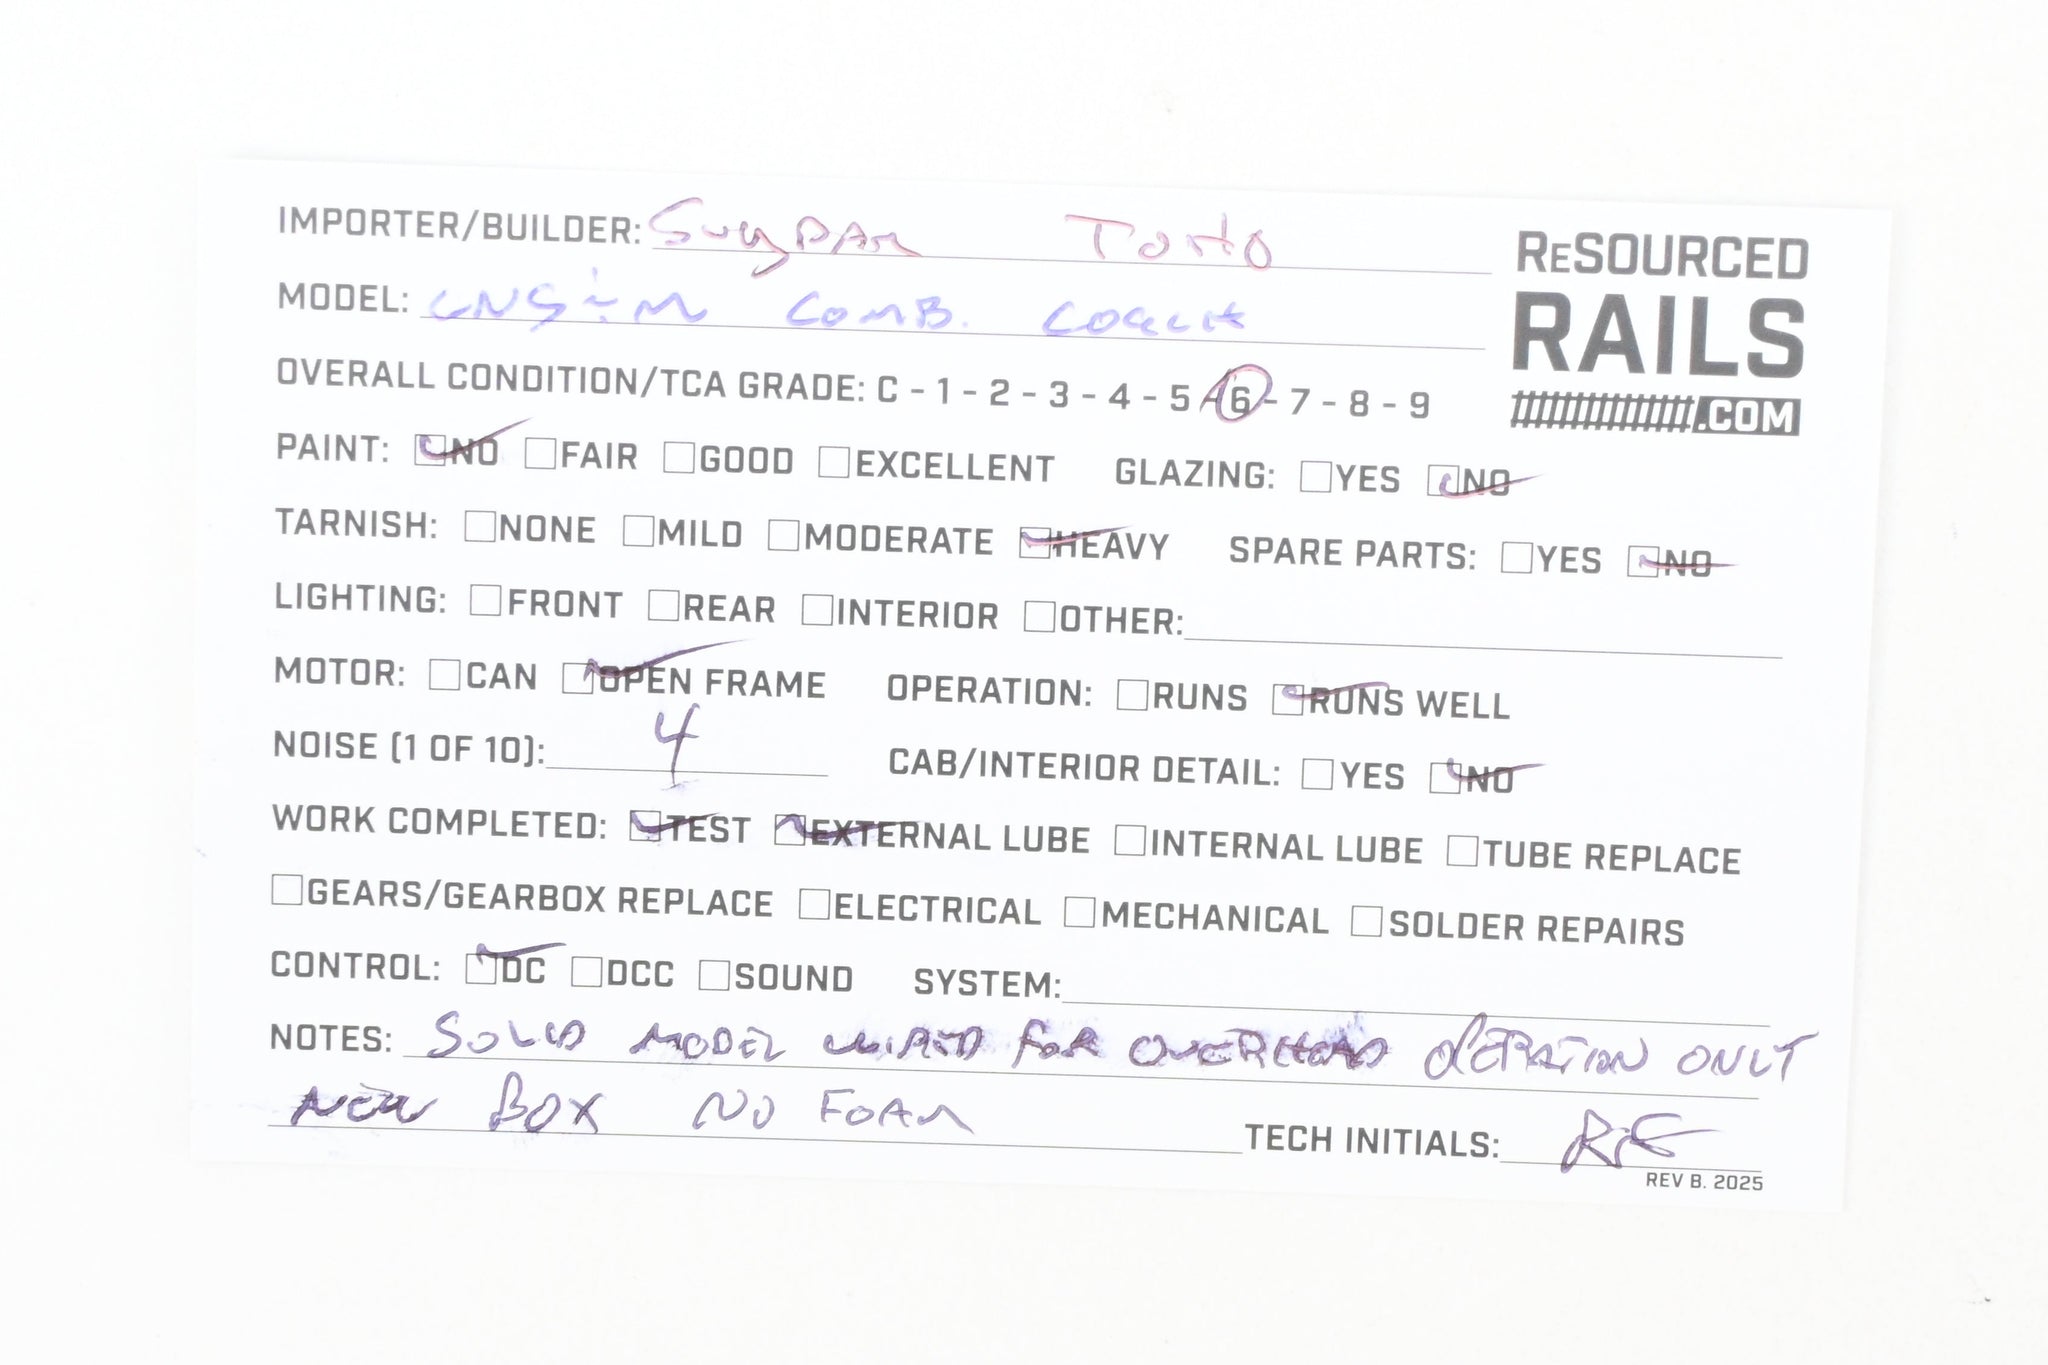 IMPORTER/BUILDER: Suydam Toho
RESOURCED
RAILS
.COM
MODEL: CNS&M COMB. COACH
OVERALL CONDITION/TCA GRADE: C - 1 - 2 - 3 - 4 - 5 - 6 - 7 - 8 - 9
PAINT: NO FAIR GOOD EXCELLENT GLAZING: YES NO
TARNISH: NONE MILD MODERATE HEAVY SPARE PARTS: YES NO
LIGHTING: FRONT REAR INTERIOR OTHER:
MOTOR: CAN OPEN FRAME OPERATION: RUNS RUNS WELL
NOISE (1 OF 10): 4 CAB/INTERIOR DETAIL: YES NO
WORK COMPLETED: TEST EXTERNAL LUBE INTERNAL LUBE TUBE REPLACE
GEARS/GEARBOX REPLACE ELECTRICAL MECHANICAL SOLDER REPAIRS
CONTROL: DC DCC SOUND SYSTEM:
NOTES: SOLID MODEL WIRED FOR OVERHEAD OPERATION ONLY
NEW BOX NO FOAM TECH INITIALS:
REV B. 2025